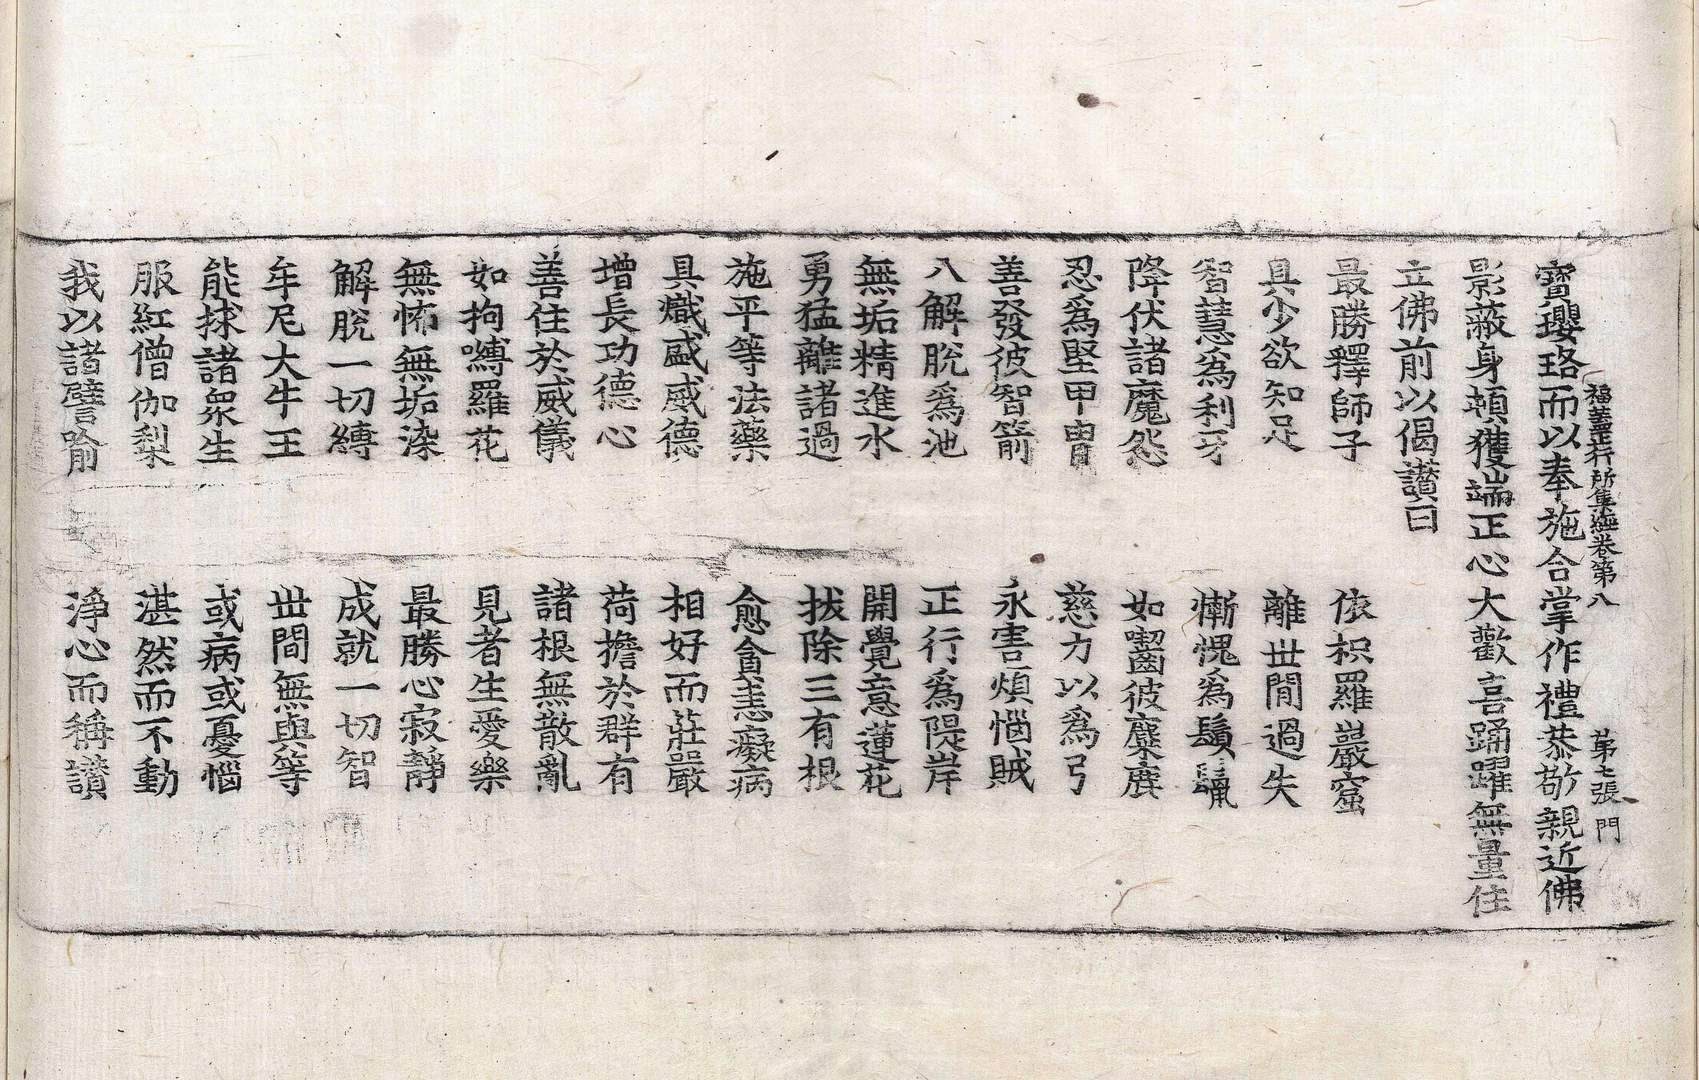 福蓋正行所集經卷第八 第七張 門
寶瓔珞而以奉施合掌作禮恭敬親近佛
影蔽身頓獲端正心大歡喜踊躍無量住
立佛前以偈讃曰
最勝釋師子 依枳羅巖窟
具少欲知足 離世間過失
智慧爲利牙 慚愧爲鬚鬣
降伏諸魔怨 如齧彼麋鹿
忍爲堅甲冑 慈力以爲弓
善發彼智箭 永害煩惱賊
八解脫爲池 正行爲隄岸
無垢精進水 開覺意蓮花
勇猛離諸過 拔除三有根
施平等法藥 愈貪恚癡病
具熾盛威德 相好而莊嚴
增長功德心 荷擔於群有
善住於威儀 諸根無散亂
如拘嚩羅花 見者生愛樂
無怖無垢染 最勝心寂靜
解脫一切縛 成就一切智
牟尼大牛王 世間無與等
能捄諸衆生 或病或憂惱
服紅僧伽梨 湛然而不動
我以諸譬喻 淨心而稱讃